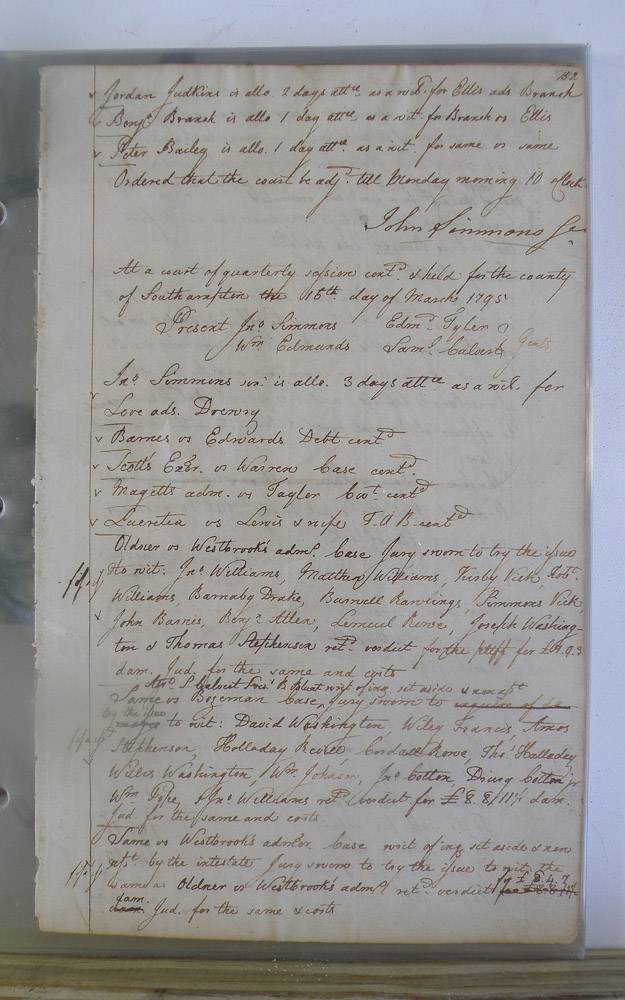 182
Jordan Judkins is allo. 2 days attce as a wit. for Ellis ads Branch
Benja Branch is allo 1 day attce as a wit. for Branch vs Ellis
Peter Bailey is allo. 1 day attce as a wit. for same vs same
Ordered that the court be adjd till Monday morning 10 oClock
John Simmons
At a court of quarterly session contd & held for the county
of Southampton the 16th day of March 1795
Present Jno Simmons Edmd Tyler
Wm Edmunds Saml Calvert Gents
Jno Simmons is allo. 3 days attce as a wit. for
Love ads. Drewry
Barnes vs Edwards Debt contd
Scott's Exer. vs Warren Case contd
Magetts adm. vs Taylor contd
Lucretia vs Lewis & wife T.A.B. contd
Oldner vs Westbrook's adms. Case Jury sworn to try the issue
to wit: Jno Williams, Matthew Williams, Kirby Vick, Robt
Williams, Barnaby Drake, Burwell Rawlings, Simmons Vick,
John Barnes, Benja Atten, Lemuel Rowe, Joseph Washing-
ton & Thomas Stephenson retd verdict for the pltff for
dam. Jud. for the same and costs
writ of inq set aside &
Same vs Bozeman Case, Jury sworn to
try the issue to wit: David Washington, Wiley Francis, Amos
Stephenson, Holladay Cordall Rowe, Thos Halladay
Washington, Wm Johnson, Jno Cotton, Drury Cotton jr
Wm Pope, & Jno Williams retd verdict for £8.8/11½ dam.
Jud. for the same and costs
Same vs Westbrook's admer. Case writ of inq set aside & non
asst by the intestate Jury sworn to try the issue to wit, the
same as Oldner vs Westbrook's adms. retd verdict for £8.4.7
dam. Jud. for the same & costs